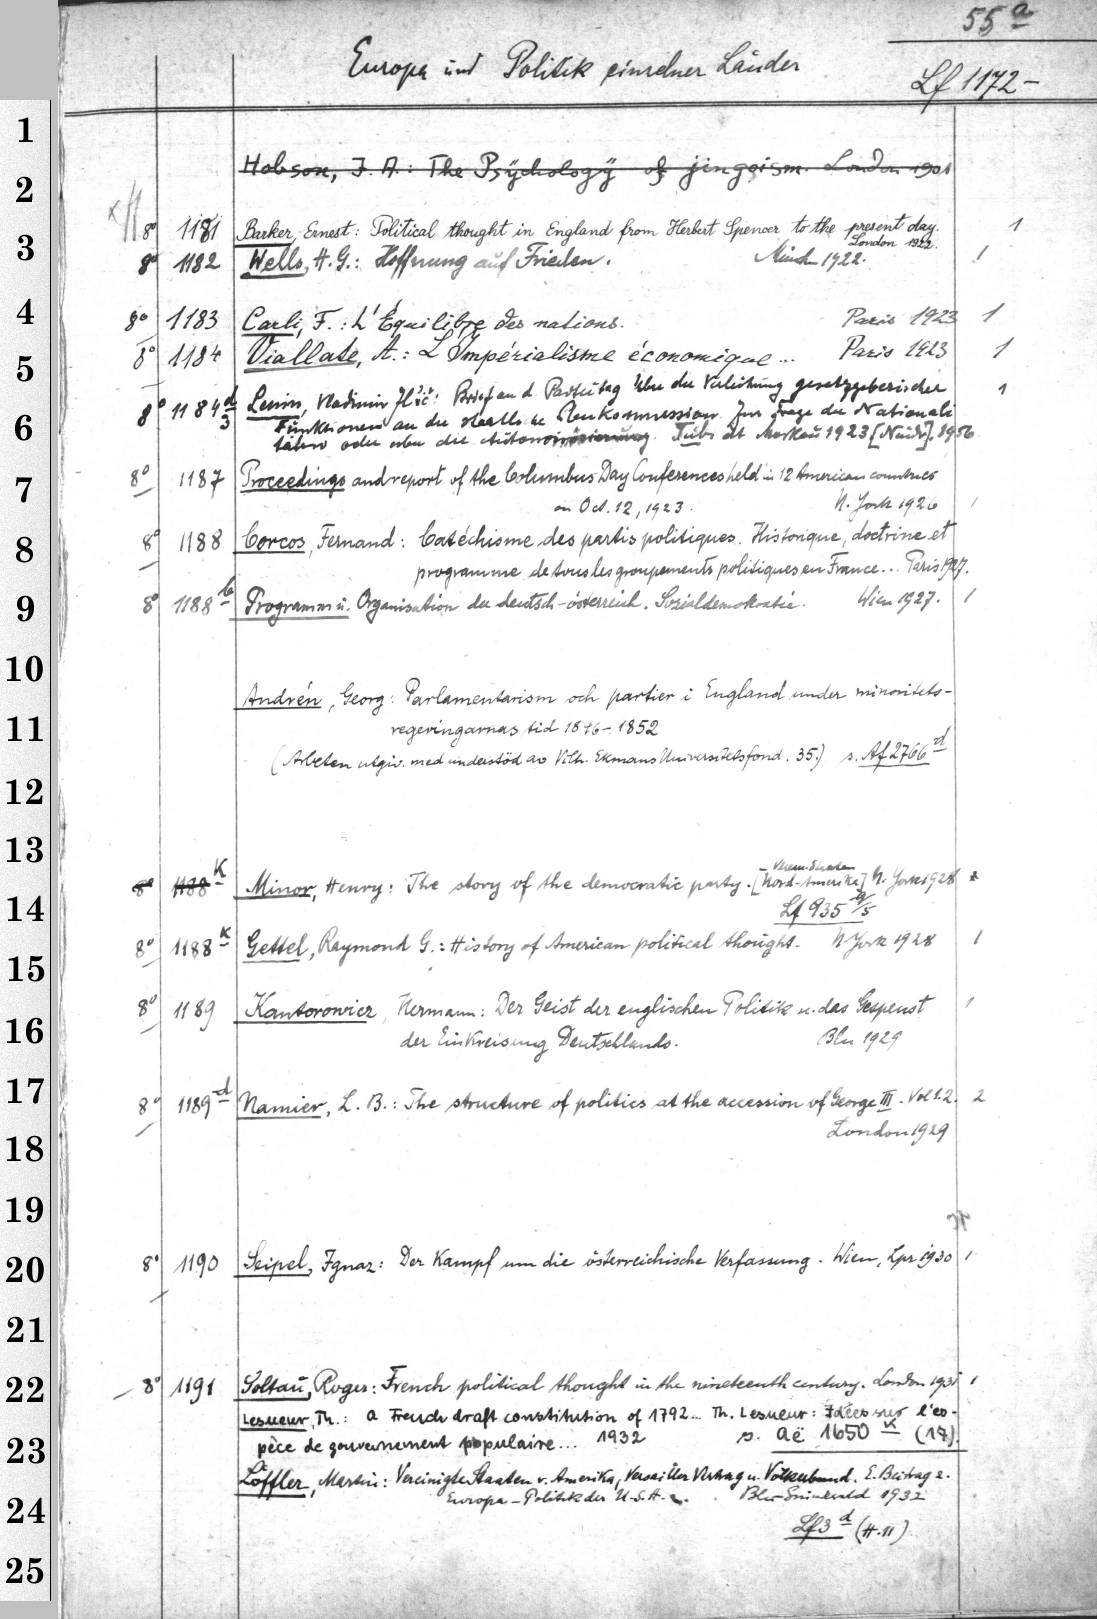 55 a
Europa und Politik einzelner Länder
Lf 1172 –
1
Hobson, J. A.: The Psychology of jingoism. London 1901
2
8° 1181 Barker, Ernest: Political thought in England from Herbert Spencer to the present day. 1
London 1922.
3
8° 1182 Wells, H. G.: Hoffnung auf Frieden. Münch 1922. 1
4
8° 1183 Carli, F.: L'Équilibre des nations. Paris 1923 1
8° 1184 Viallate, A.: L'Impérialisme économique ... Paris 1923 1
5
8° 1184 d/3 Lenin, Vladimir Il'ič: Brief an d. Parteitag über die Verleihung gesetzgeberischer 1
6
Funktionen an die staatliche Plankommission. Zur Frage der Nationali
täten oder über die Autonomisierung. Tübs at Moskau 1923 [Neudr.] 1956
7
8° 1187 Proceedings and report of the Columbus Day Conferences held in 12 American countries
on Oct. 12, 1923. N. York 1926 1
8
8° 1188 Corcos, Fernand: Catéchisme des partis politiques. Historique, doctrine et
programme de tous les groupements politiques en France... Paris 1927.
9
8° 1188 b Programm u. Organisation der deutsch-österreich. Sozialdemokratie. Wien 1927. 1
10
Andrén, Georg: Parlamentarism och partier i England under minoritets-
11
regeringarnas tid 1846–1852
(Arbeten utgiv. med understöd av Vilh. Ekmans Universitetsfond. 35.) s. Af 2766 d
12
13
Verein. Staaten
8° 1188 K Minor, Henry: The story of the democratic party. [Nord-Amerika] N. York 1928
14
Lf 935 g/5
8° 1188 K Gettel, Raymond G.: History of American political thought. N York 1928 1
15
8° 1189 Kantorowicz, Hermann: Der Geist der englischen Politik u. das Gespenst 1
16
der Einkreisung Deutschlands. Bln 1929
17
8° 1189 d Namier, L. B.: The structure of politics at the accession of George III. Vol 1.2. 2
London 1929
18
19
20
8° 1190 Seipel, Ignaz: Der Kampf um die österreichische Verfassung. Wien, Lpz 1930 1
21
22
8° 1191 Soltau, Roger: French political thought in the nineteenth century. London 1931 1
Lesueur, Th.: a French draft constitution of 1792... Th. Lesueur: Idées sur l'es-
23
pèce de gouvernement populaire... 1932 s. aë 1650 K (17).
Löffler, Martin: Vereinigte Staaten v. Amerika, Versailler Vertrag u. Völkerbund. E. Beitrag z.
24
Europa-Politik der U.S.A. Bln-Grunewald 1932
Lf 3 d (H. 11)
25